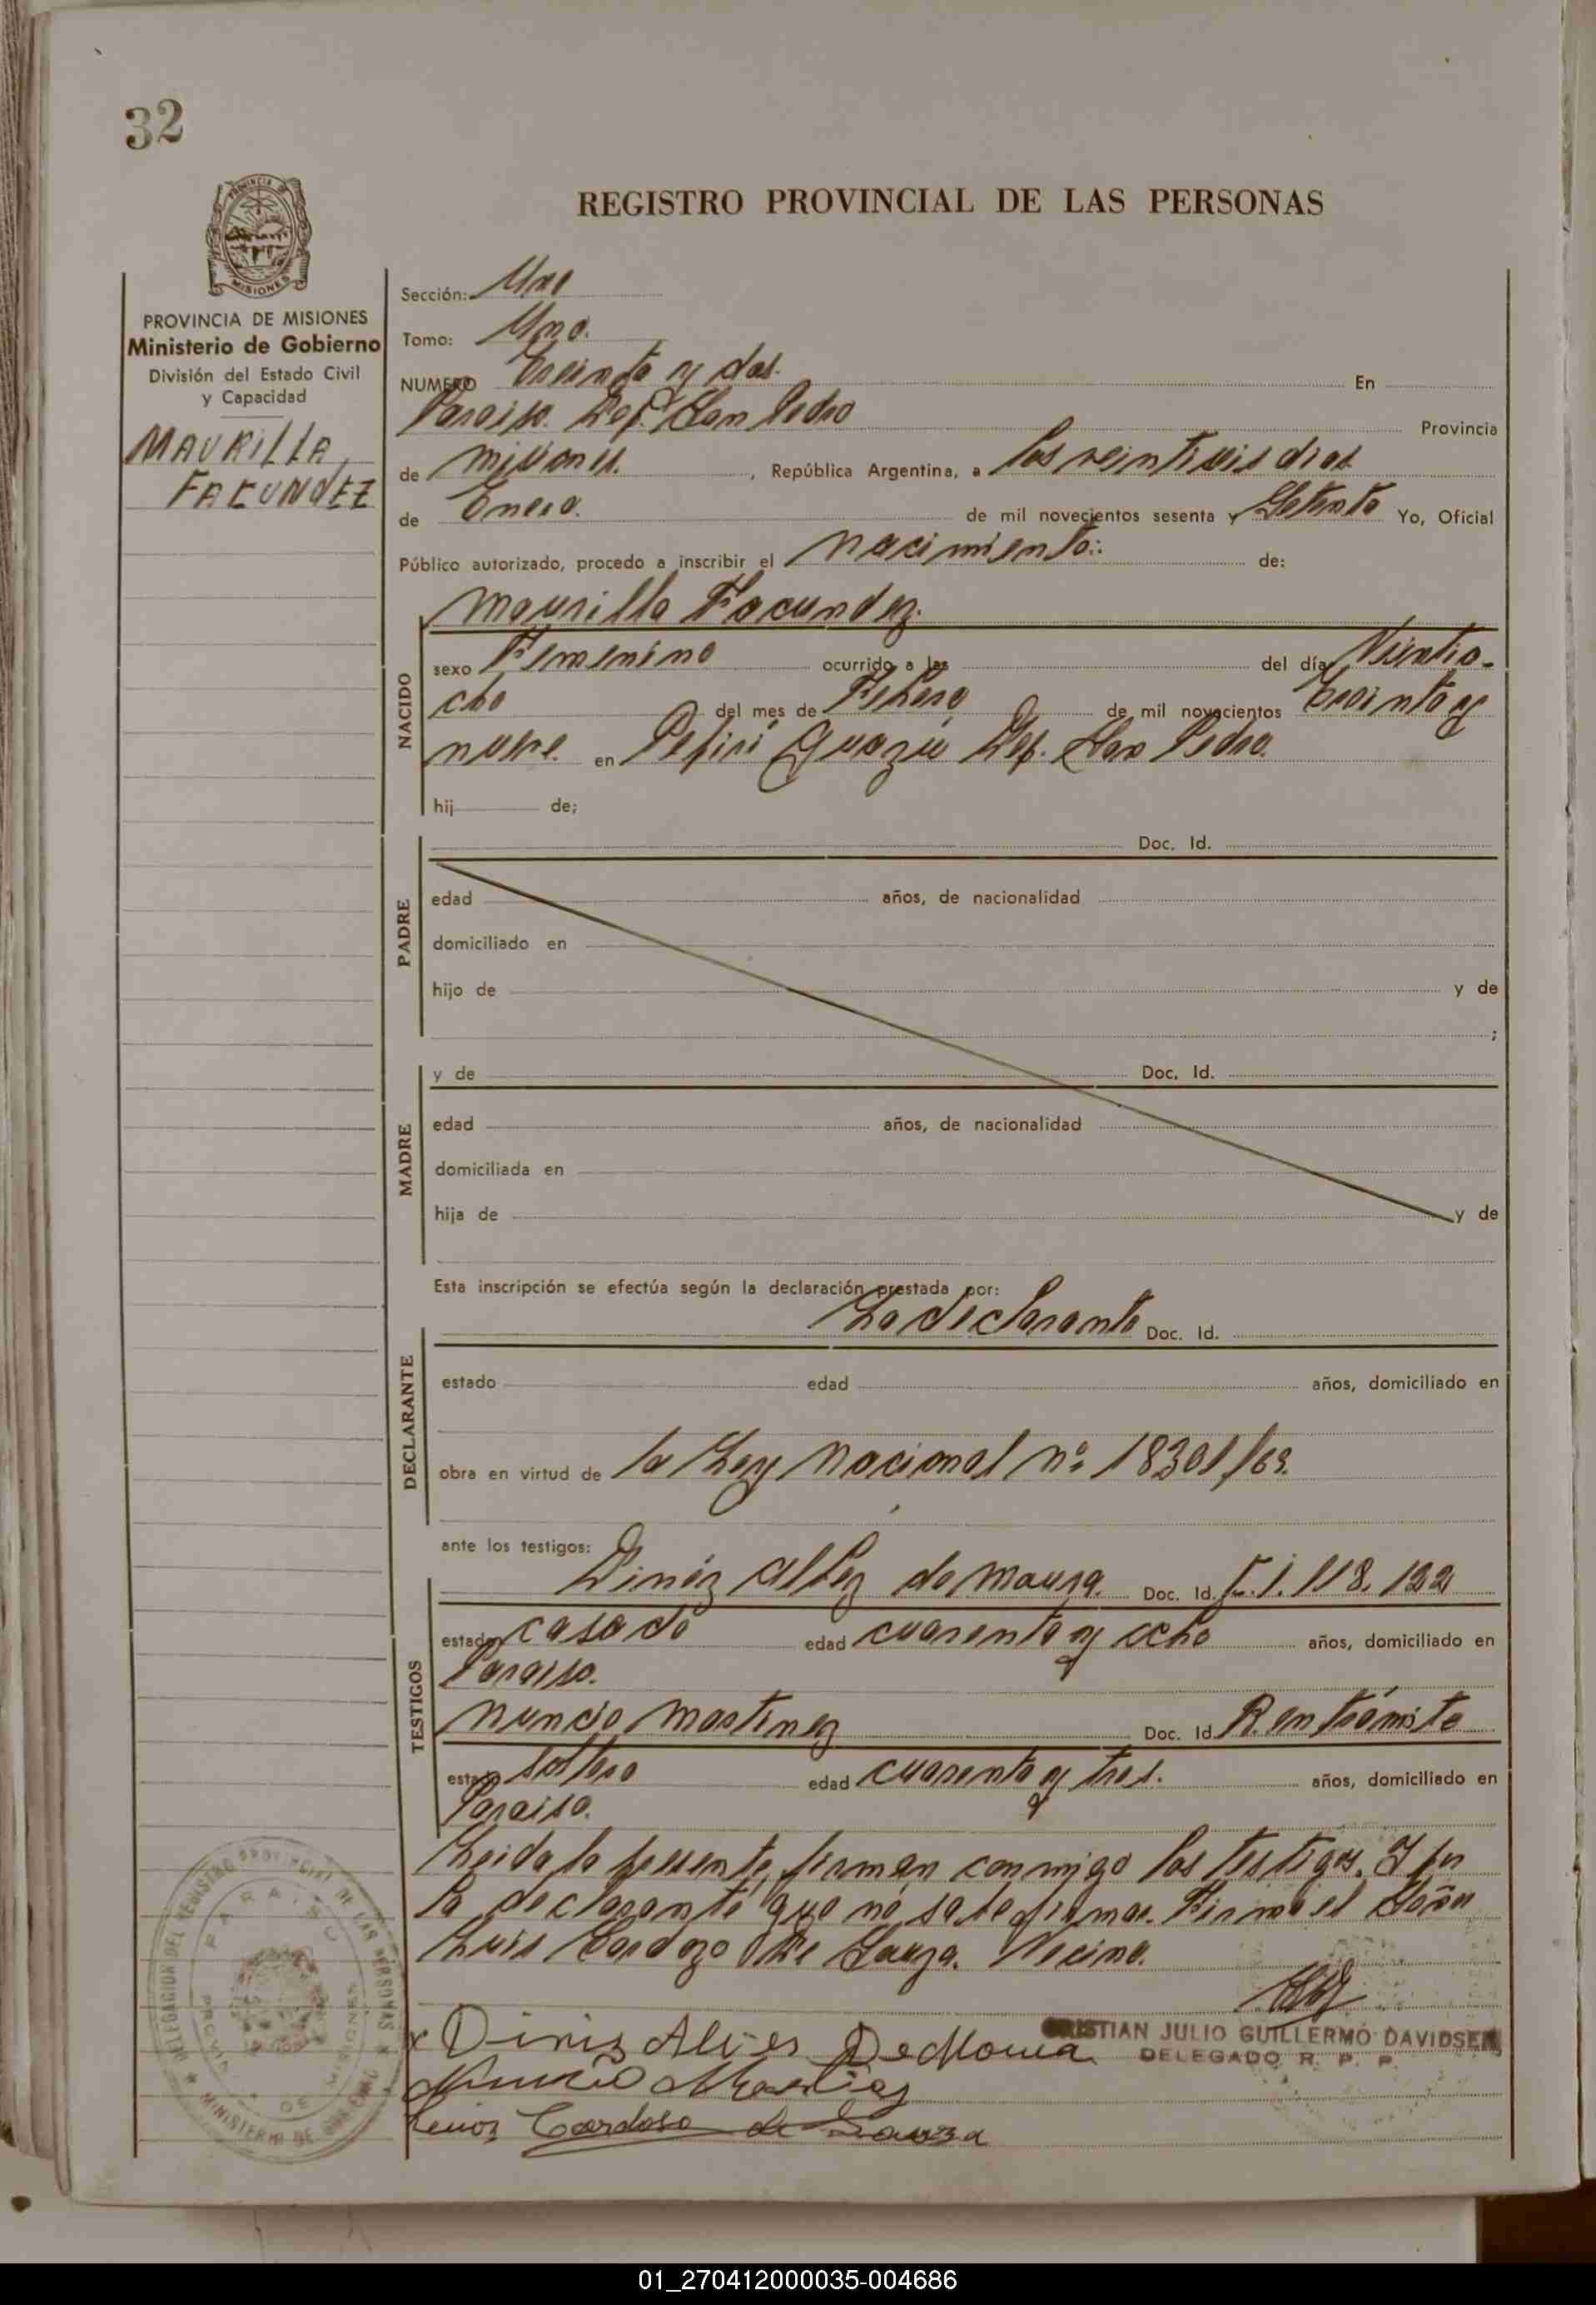 32
REGISTRO PROVINCIAL DE LAS PERSONAS
PROVINCIA DE MISIONES
Ministerio de Gobierno
División del Estado Civil
y Capacidad
MAURILLA
FACUNDEZ
Sección: Uno
Tomo: Uno.
NUMERO Treinta y dos. En
Paraiso. Dep. San Pedro Provincia
de misiones. , República Argentina, a los veintiseis dias
de Enero. de mil novecientos sesenta y Setenta Yo, Oficial
Público autorizado, procedo a inscribir el nacimiento: de:
Maurilla Facundez.
NACIDO
sexo Femenino ocurrido a las del día Vientio-
cho del mes de Febrero de mil novecientos treinta y
nueve. en Pepiri Guazú Dep. San Pedro.
hij de;
PADRE
Doc. Id.
edad años, de nacionalidad
domiciliado en
hijo de y de
;
MADRE
y de Doc. Id.
edad años, de nacionalidad
domiciliada en
hija de y de
Esta inscripción se efectúa según la declaración prestada por:
DECLARANTE
La declarante Doc. Id.
estado edad años, domiciliado en
obra en virtud de la Ley Nacional nº 18301/69.
ante los testigos:
TESTIGOS
Diniz Alvez de Moura. Doc. Id. C.I. 118.122
estado casado edad cuarenta y ocho años, domiciliado en
Paraiso.
Nuncio Martinez Doc. Id. R. en trámite
estado soltero edad cuarenta y tres. años, domiciliado en
Paraiso.
Leida la presente, firman conmigo los testigos. Y por
la declarante que no sabe firmar. Firma el Señor
Luis Cardozo De Sauza. Vecino.
x Diniz Alves De Moura
CRISTIAN JULIO GUILLERMO DAVIDSEN
DELEGADO R. P. P.
Cardoso de Sauza
DELEGACION DEL REGISTRO PROVINCIAL DE LAS PERSONAS
PARAISO
PROVINCIA DE MISIONES
MINISTERIO DE GOBIERNO
01_270412000035-004686